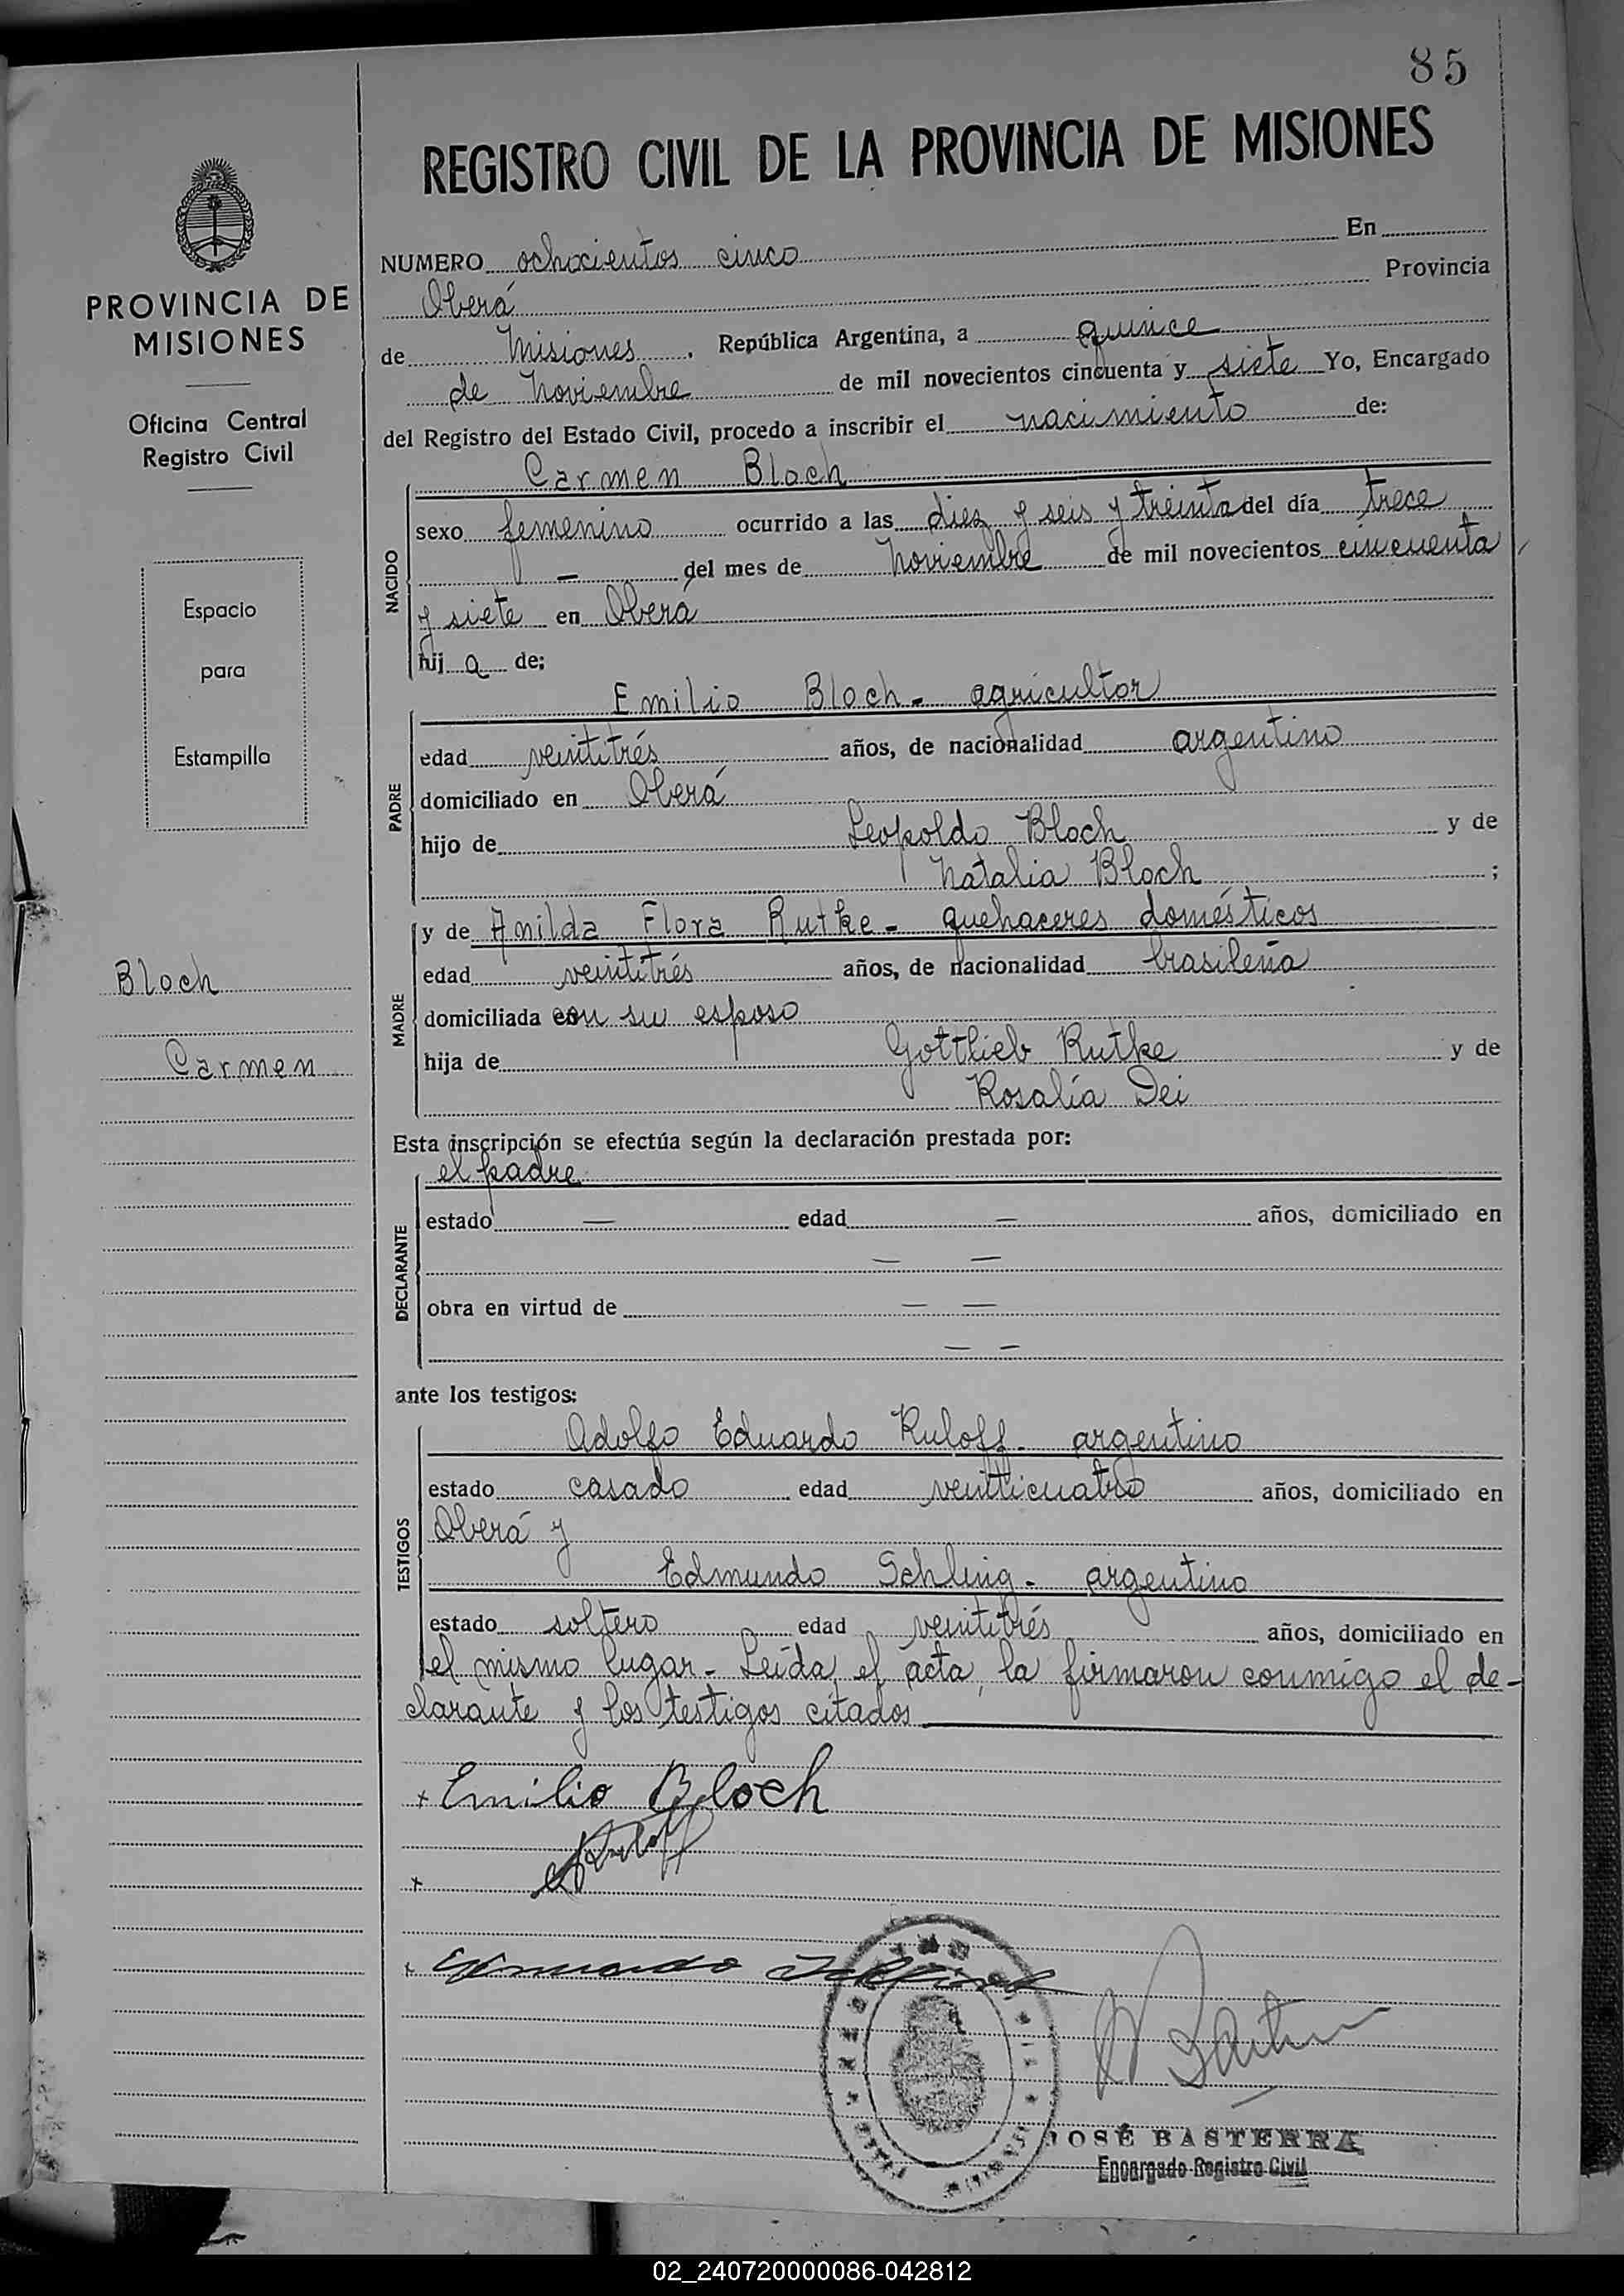 85
REGISTRO CIVIL DE LA PROVINCIA DE MISIONES
PROVINCIA DE
MISIONES
Oficina Central
Registro Civil
Espacio
para
Estampilla
Bloch
Carmen
NUMERO ochocientos cinco En
Oberá Provincia
de Misiones, República Argentina, a quince
de Noviembre de mil novecientos cincuenta y siete Yo, Encargado
del Registro del Estado Civil, procedo a inscribir el nacimiento de:
Carmen Bloch
NACIDO
sexo femenino ocurrido a las diez y seis y treinta del día trece
— del mes de Noviembre de mil novecientos cincuenta
y siete en Oberá
hij a de:
Emilio Bloch - agricultor
PADRE
edad veintitrés años, de nacionalidad argentino
domiciliado en Oberá
hijo de Leopoldo Bloch y de
Natalia Bloch ;
y de Anilda Flora Rutke - quehaceres domésticos
MADRE
edad veintitrés años, de nacionalidad brasileña
domiciliada con su esposo
hija de Gottlieb Rutke y de
Rosalía Dei
Esta inscripción se efectúa según la declaración prestada por:
el padre
DECLARANTE
estado — edad — años, domiciliado en
— —
obra en virtud de — —
— —
ante los testigos:
Adolfo Eduardo Ruloff - argentino
TESTIGOS
estado casado edad veinticuatro años, domiciliado en
Oberá y
Edmundo Schling - argentino
estado soltero edad veintitrés años, domiciliado en
el mismo lugar - Leída el acta, la firmaron conmigo el de-
clarante y los testigos citados
x Emilio Bloch
x
x
JOSÉ BASTERRA
Encargado Registro Civil
02_240720000086-042812